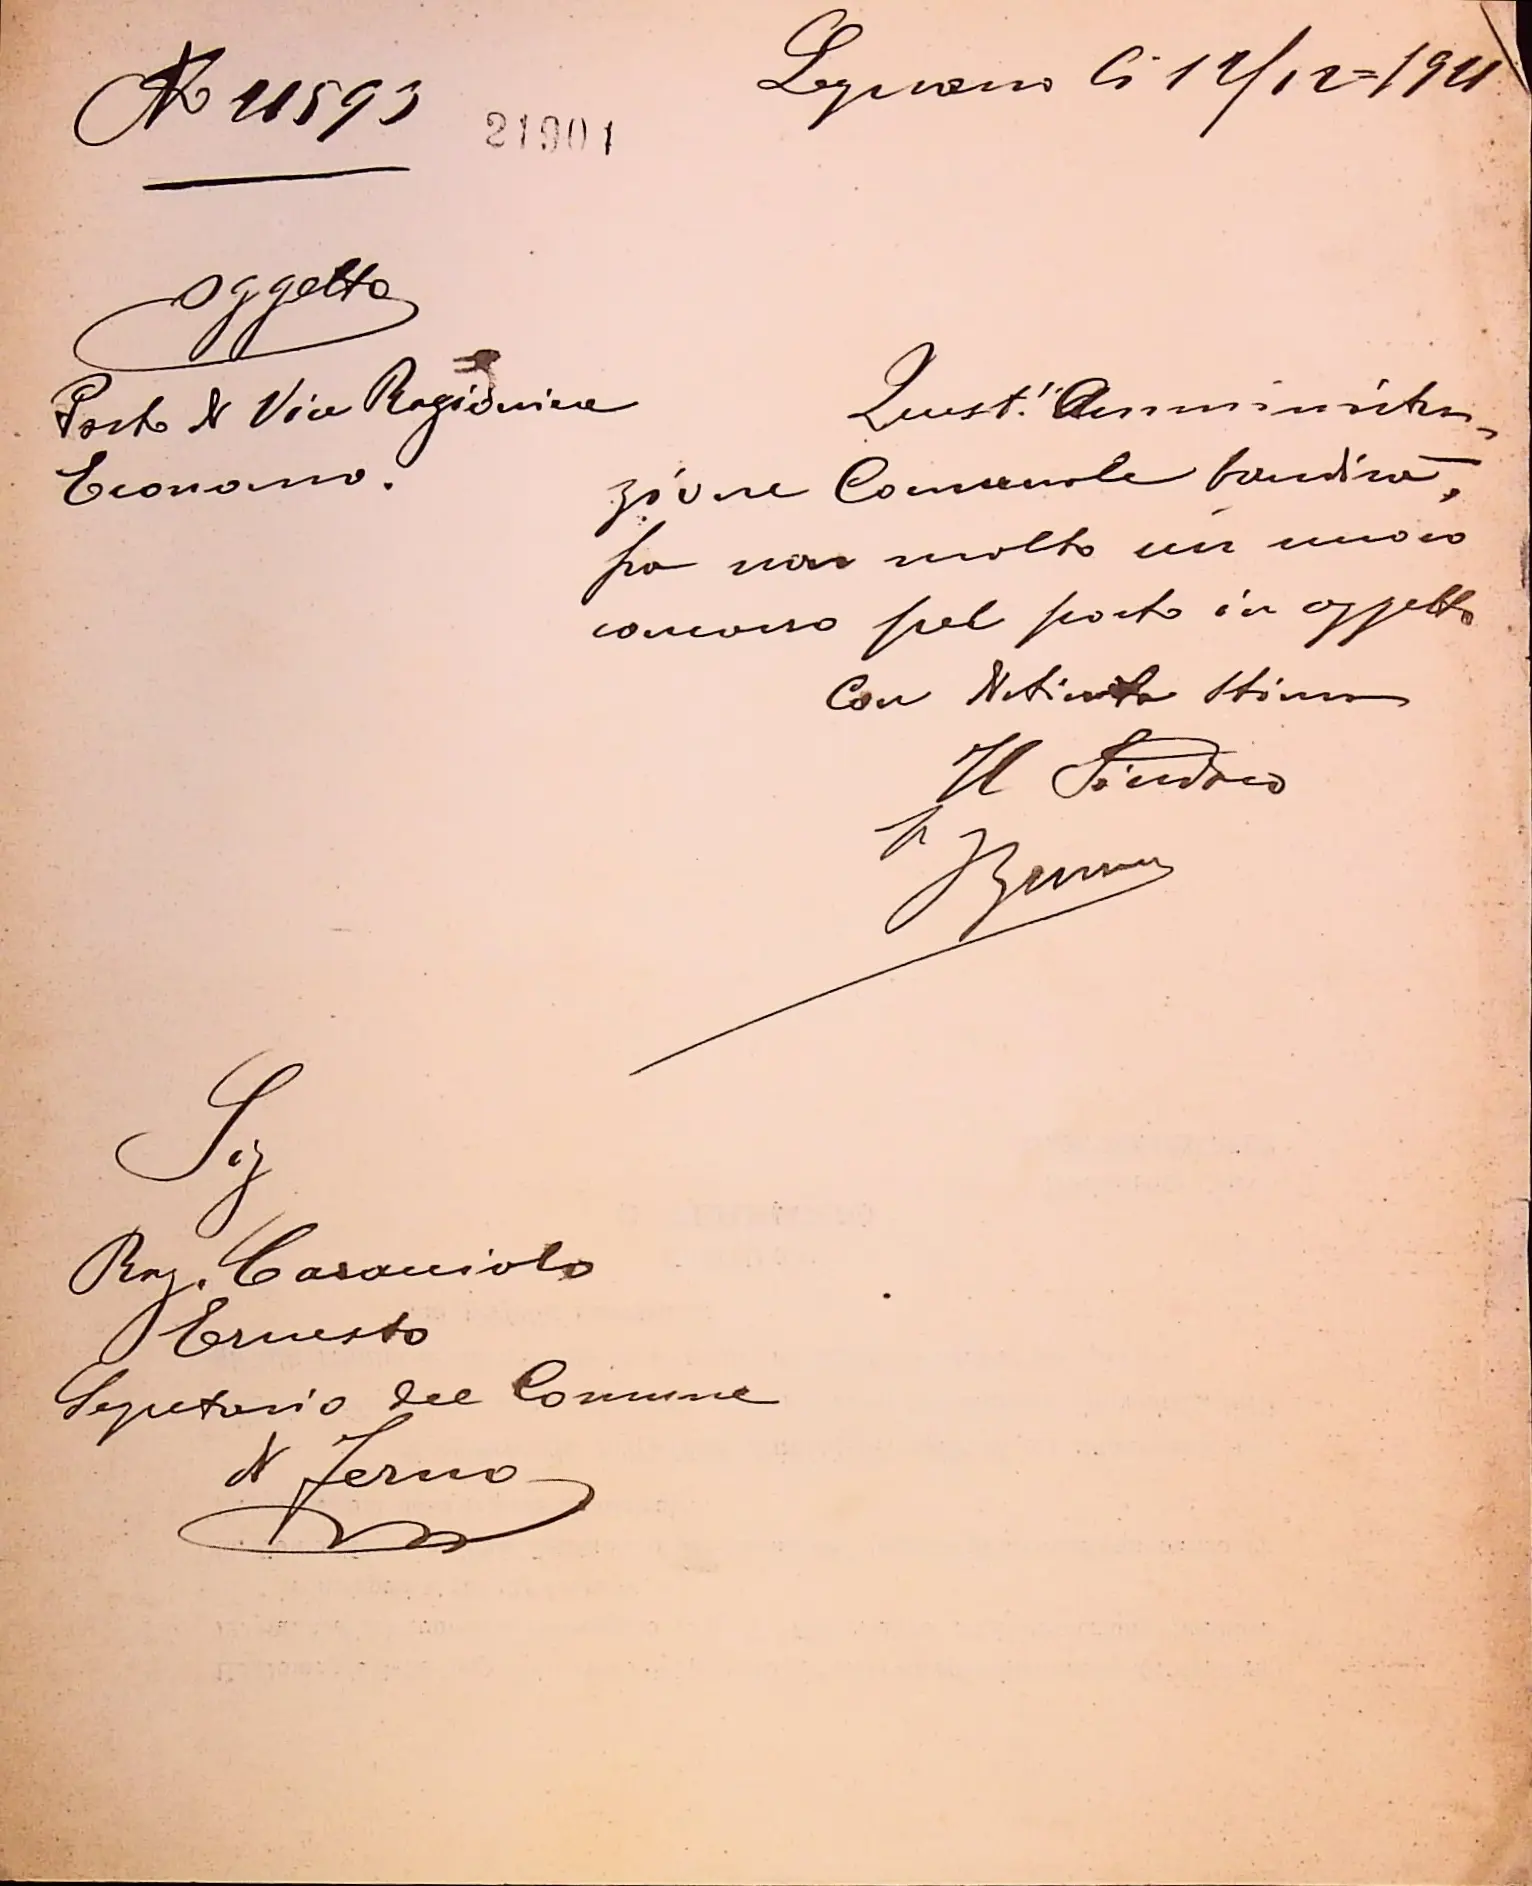 Legnano li 12/12=1921
N 21593
21901
oggetto
Posto di Vice Ragioniere
Economo.
Quest'Amministra-
zione Comunale bandirà,
fra non molto un nuovo
concorso pel posto in oggetto
Con distinta stima
Il Sindaco
Sig
Rag. Caracciolo
Ernesto
Segretario del Comune
di Ferno